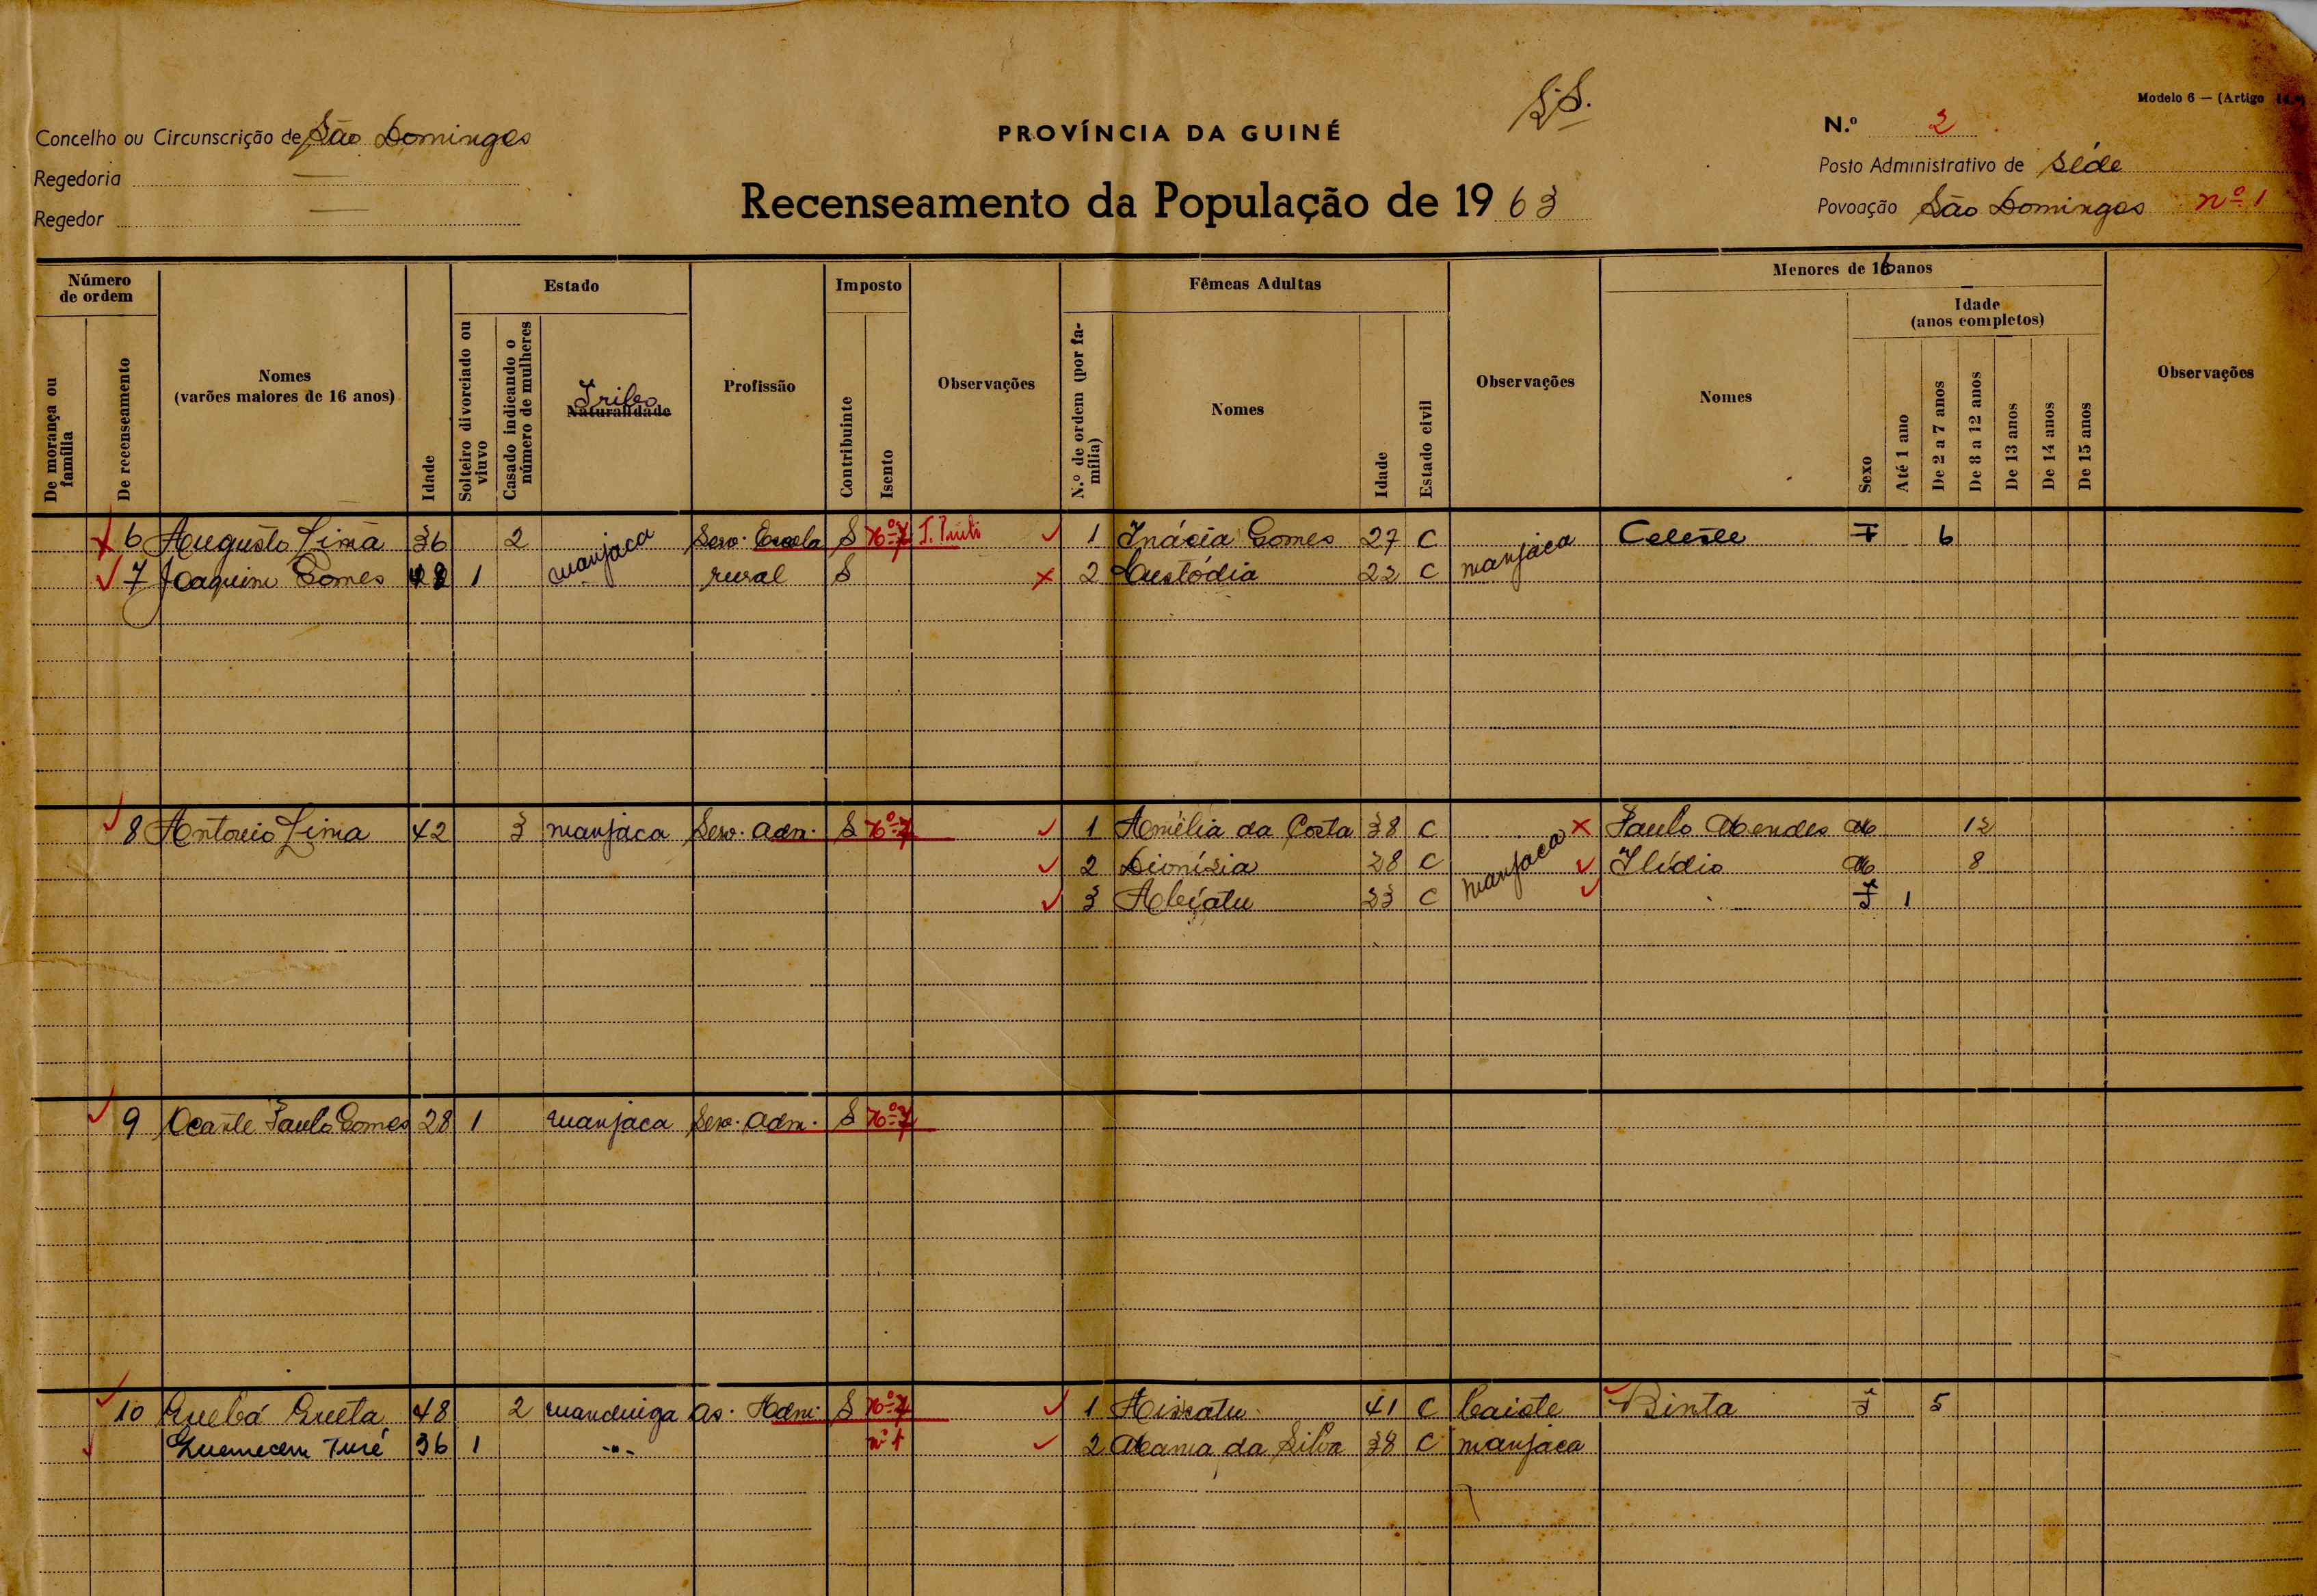 S.S.
Modelo 6 — (Artigo 14.º)
Concelho ou Circunscrição de São Domingos
PROVÍNCIA DA GUINÉ
N.º 2
Regedoria —
Posto Administrativo de Séde
Regedor —
Recenseamento da População de 1963
Povoação São Domingos nº 1
Número de ordem
Estado
Imposto
Fêmeas Adultas
Menores de 16 anos
Idade (anos completos)
De morança ou família
De recenseamento
Nomes (varões maiores de 16 anos)
Idade
Solteiro divorciado ou viuvo
Casado indicando o número de mulheres
Tribo
Naturalidade
Profissão
Contribuinte
Isento
Observações
N.º de ordem (por família)
Nomes
Idade
Estado civil
Observações
Nomes
Sexo
Até 1 ano
De 2 a 7 anos
De 8 a 12 anos
De 13 anos
De 14 anos
De 15 anos
Observações
6 Augusto Lima 36 2 manjaca Serv. Escola S nº 7 1 Inácia Gomes 27 C manjaca Celeste F 6
7 Joaquim Gomes 1 rural S 2 Custódia 22 C
8 Antonio Lima 42 3 manjaca Serv. Adm. S nº 7 1 Amélia da Costa 38 C manjaca Paulo Mendes M 12
2 Dionísia 28 C Ilídio M 8
3 23 C F 1
9 Ocante Paulo Gomes 28 1 manjaca Serv. Adm. S nº 7
10 48 2 mandinga As. Adm. S nº 7 1 41 C Binta F 5
Turé 36 1 -"- nº 1 2 Mama da Silva 38 C manjaca